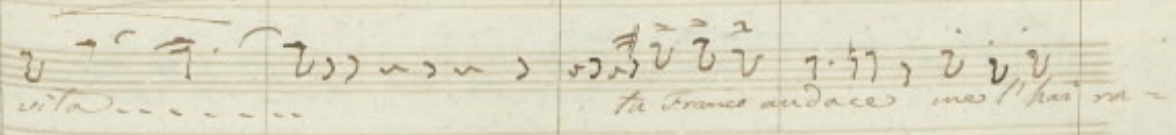 vita . . . . . . . . tu Franco audace me l'hai ra =